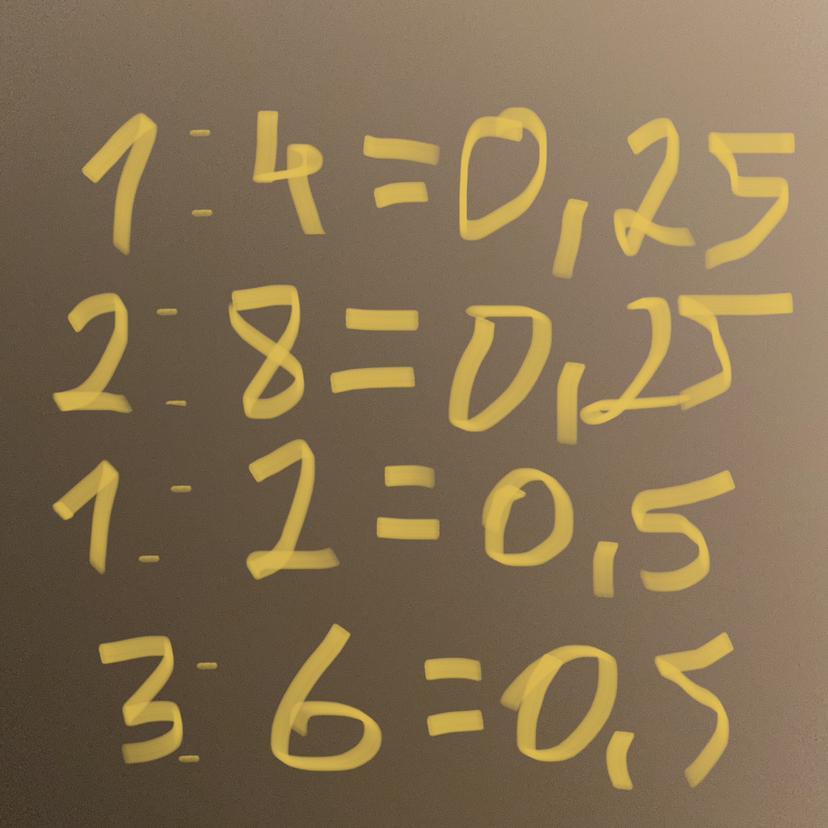 1 : 4 = 0,25
2 : 8 = 0,25
1 : 2 = 0,5
3 : 6 = 0,5